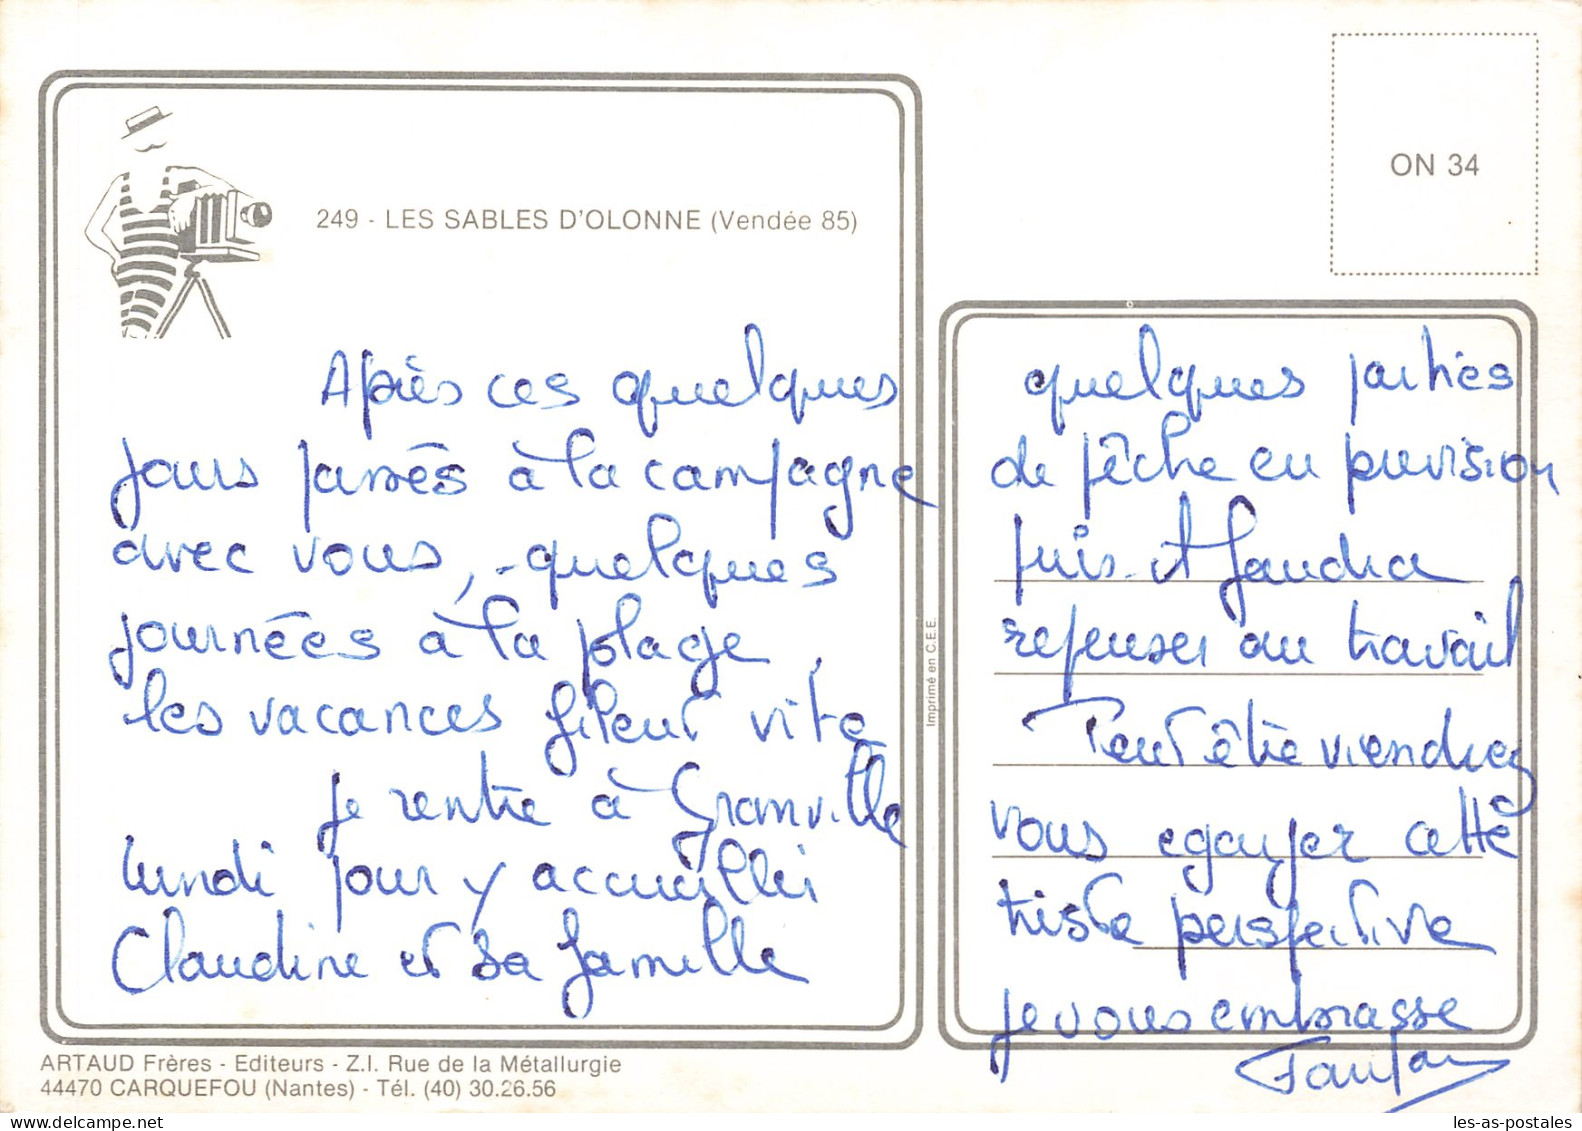 249 - LES SABLES D'OLONNE (Vendée 85)
ON 34
Après ces quelques
jours passés à la campagne
avec vous, quelques
journées à la plage,
les vacances filent vite
je rentre à Granville
lundi pour y accueillir
Claudine et sa famille
quelques parties
de pêche en prévision
puis il faudra
repenser au travail
Peut être viendrez
vous egayer cette
triste perspective
je vous embrasse
Imprimé en C.E.E.
ARTAUD Frères - Editeurs - Z.I. Rue de la Métallurgie
44470 CARQUEFOU (Nantes) - Tél. (40) 30.26.56
les-as-postales